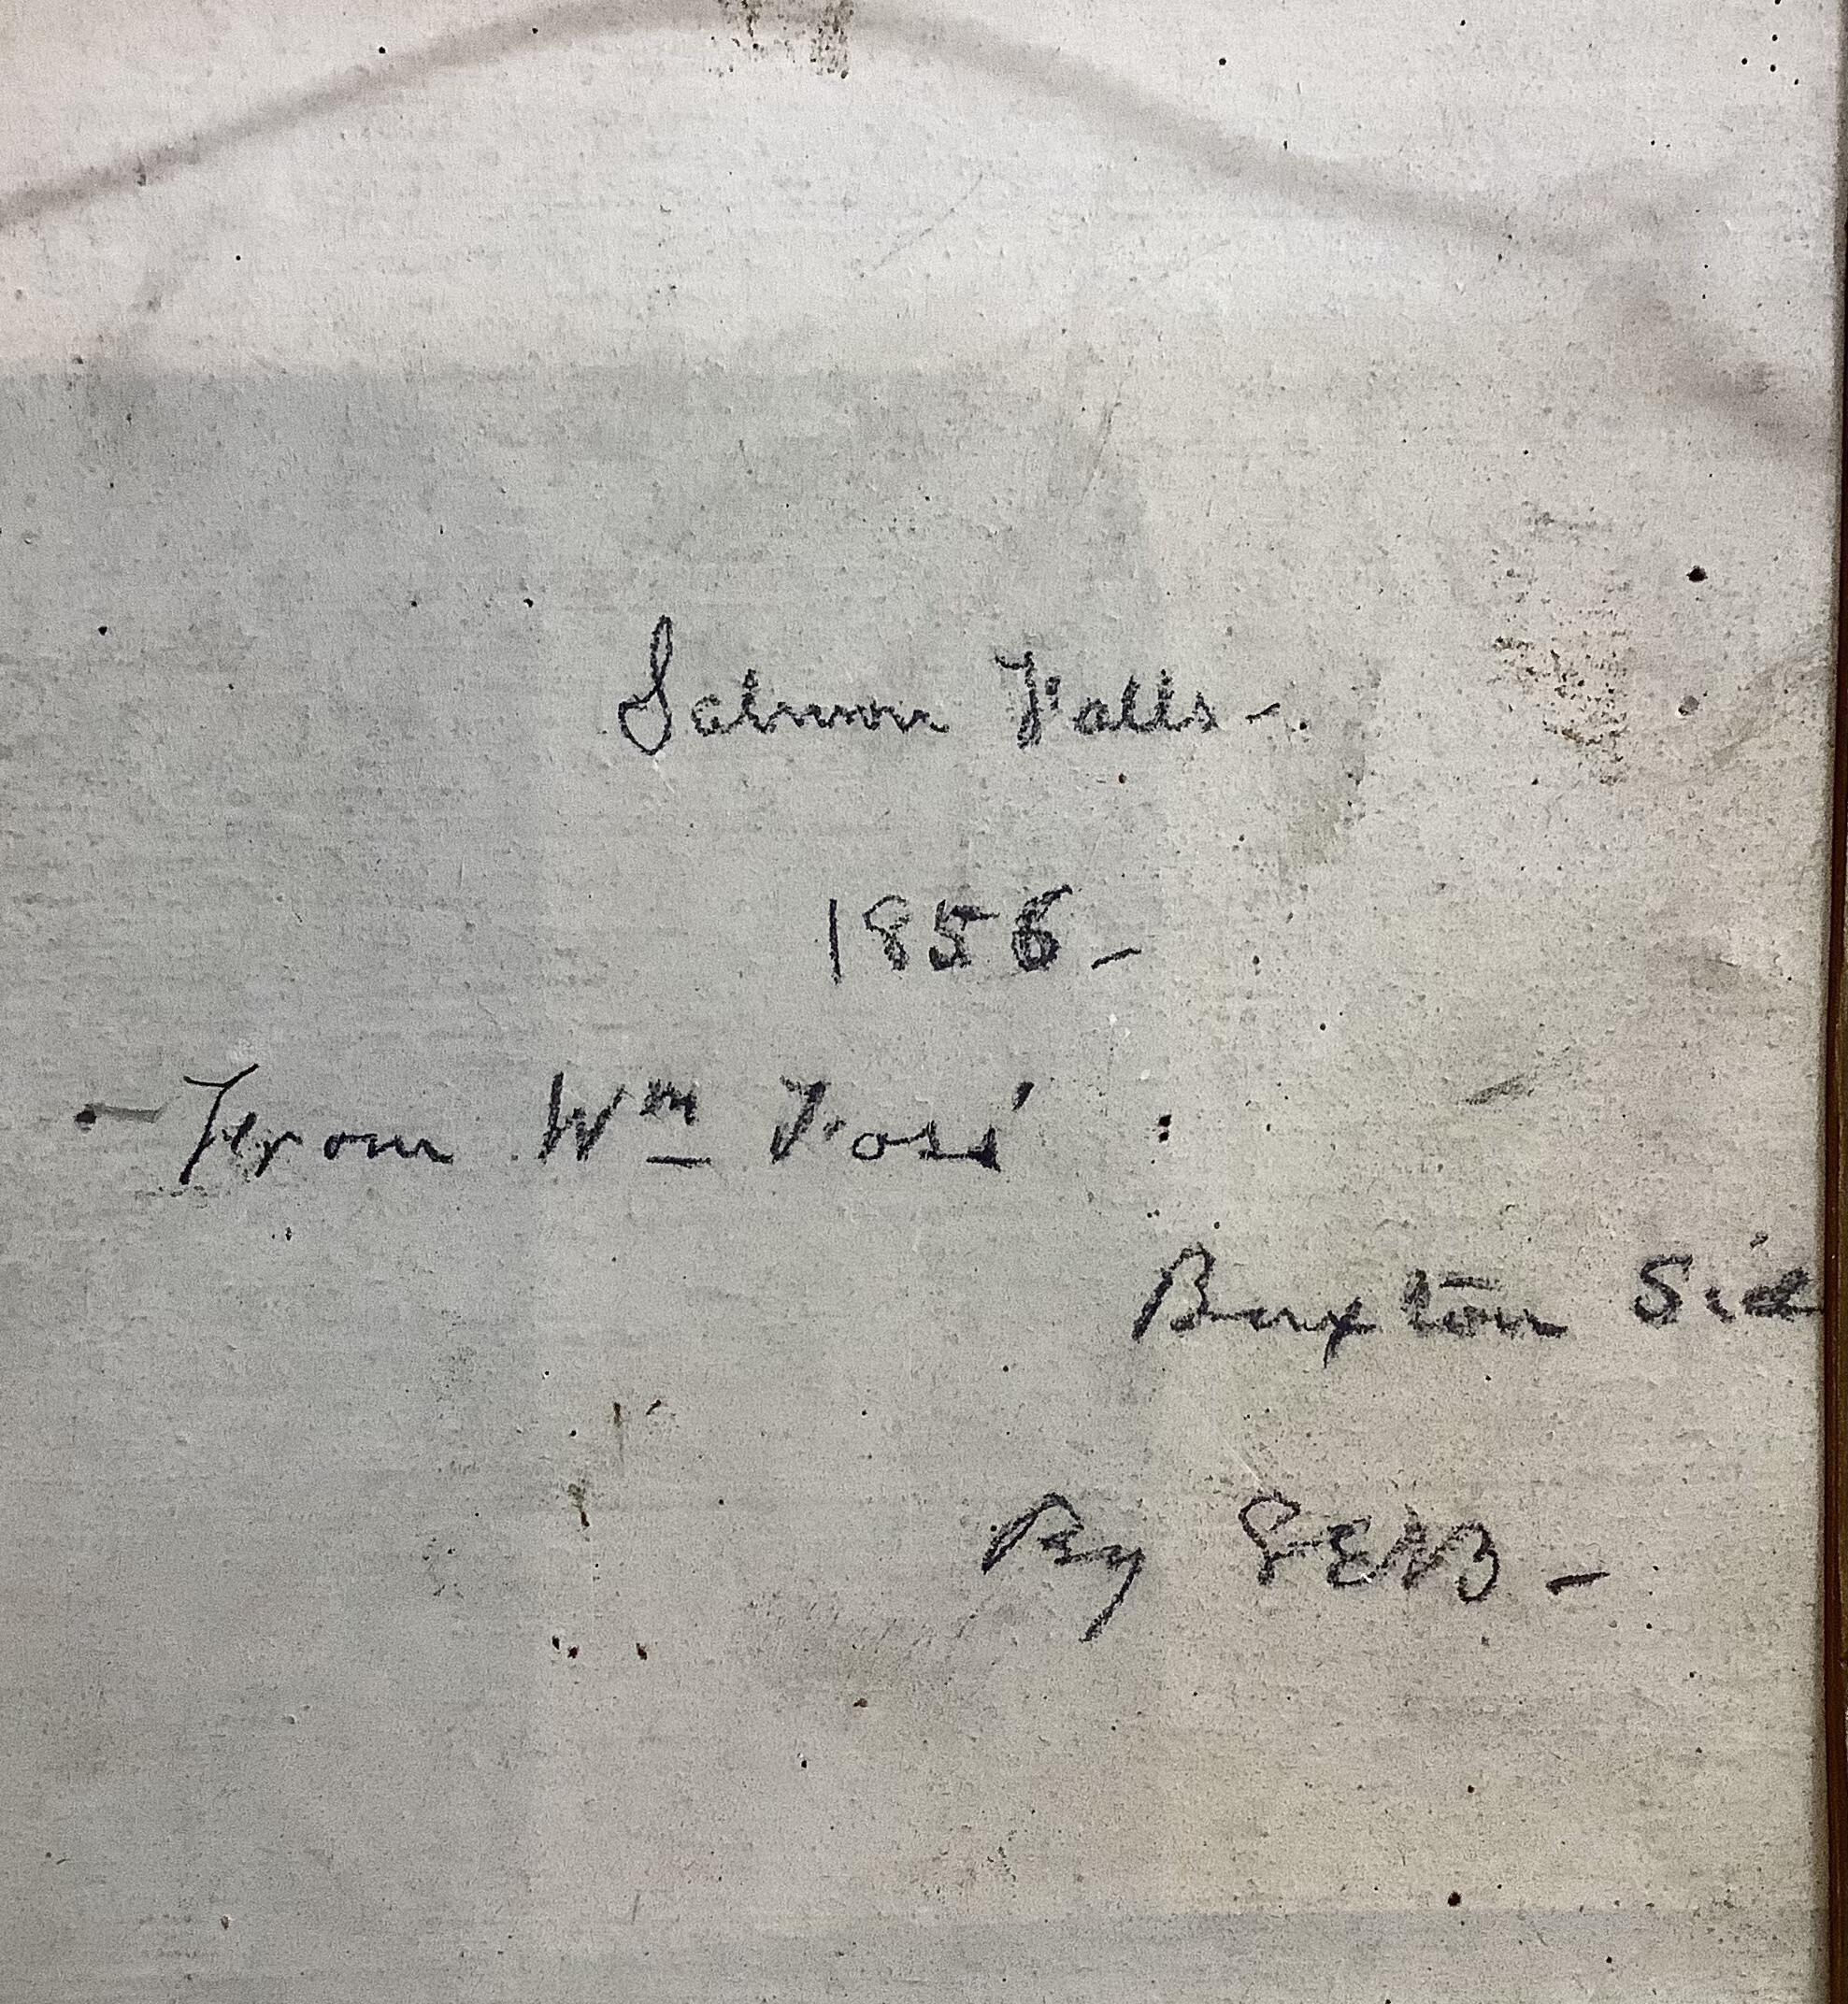 Salmon Falls -
1856 -
- From Wm Foss'
Buxton Sid
By